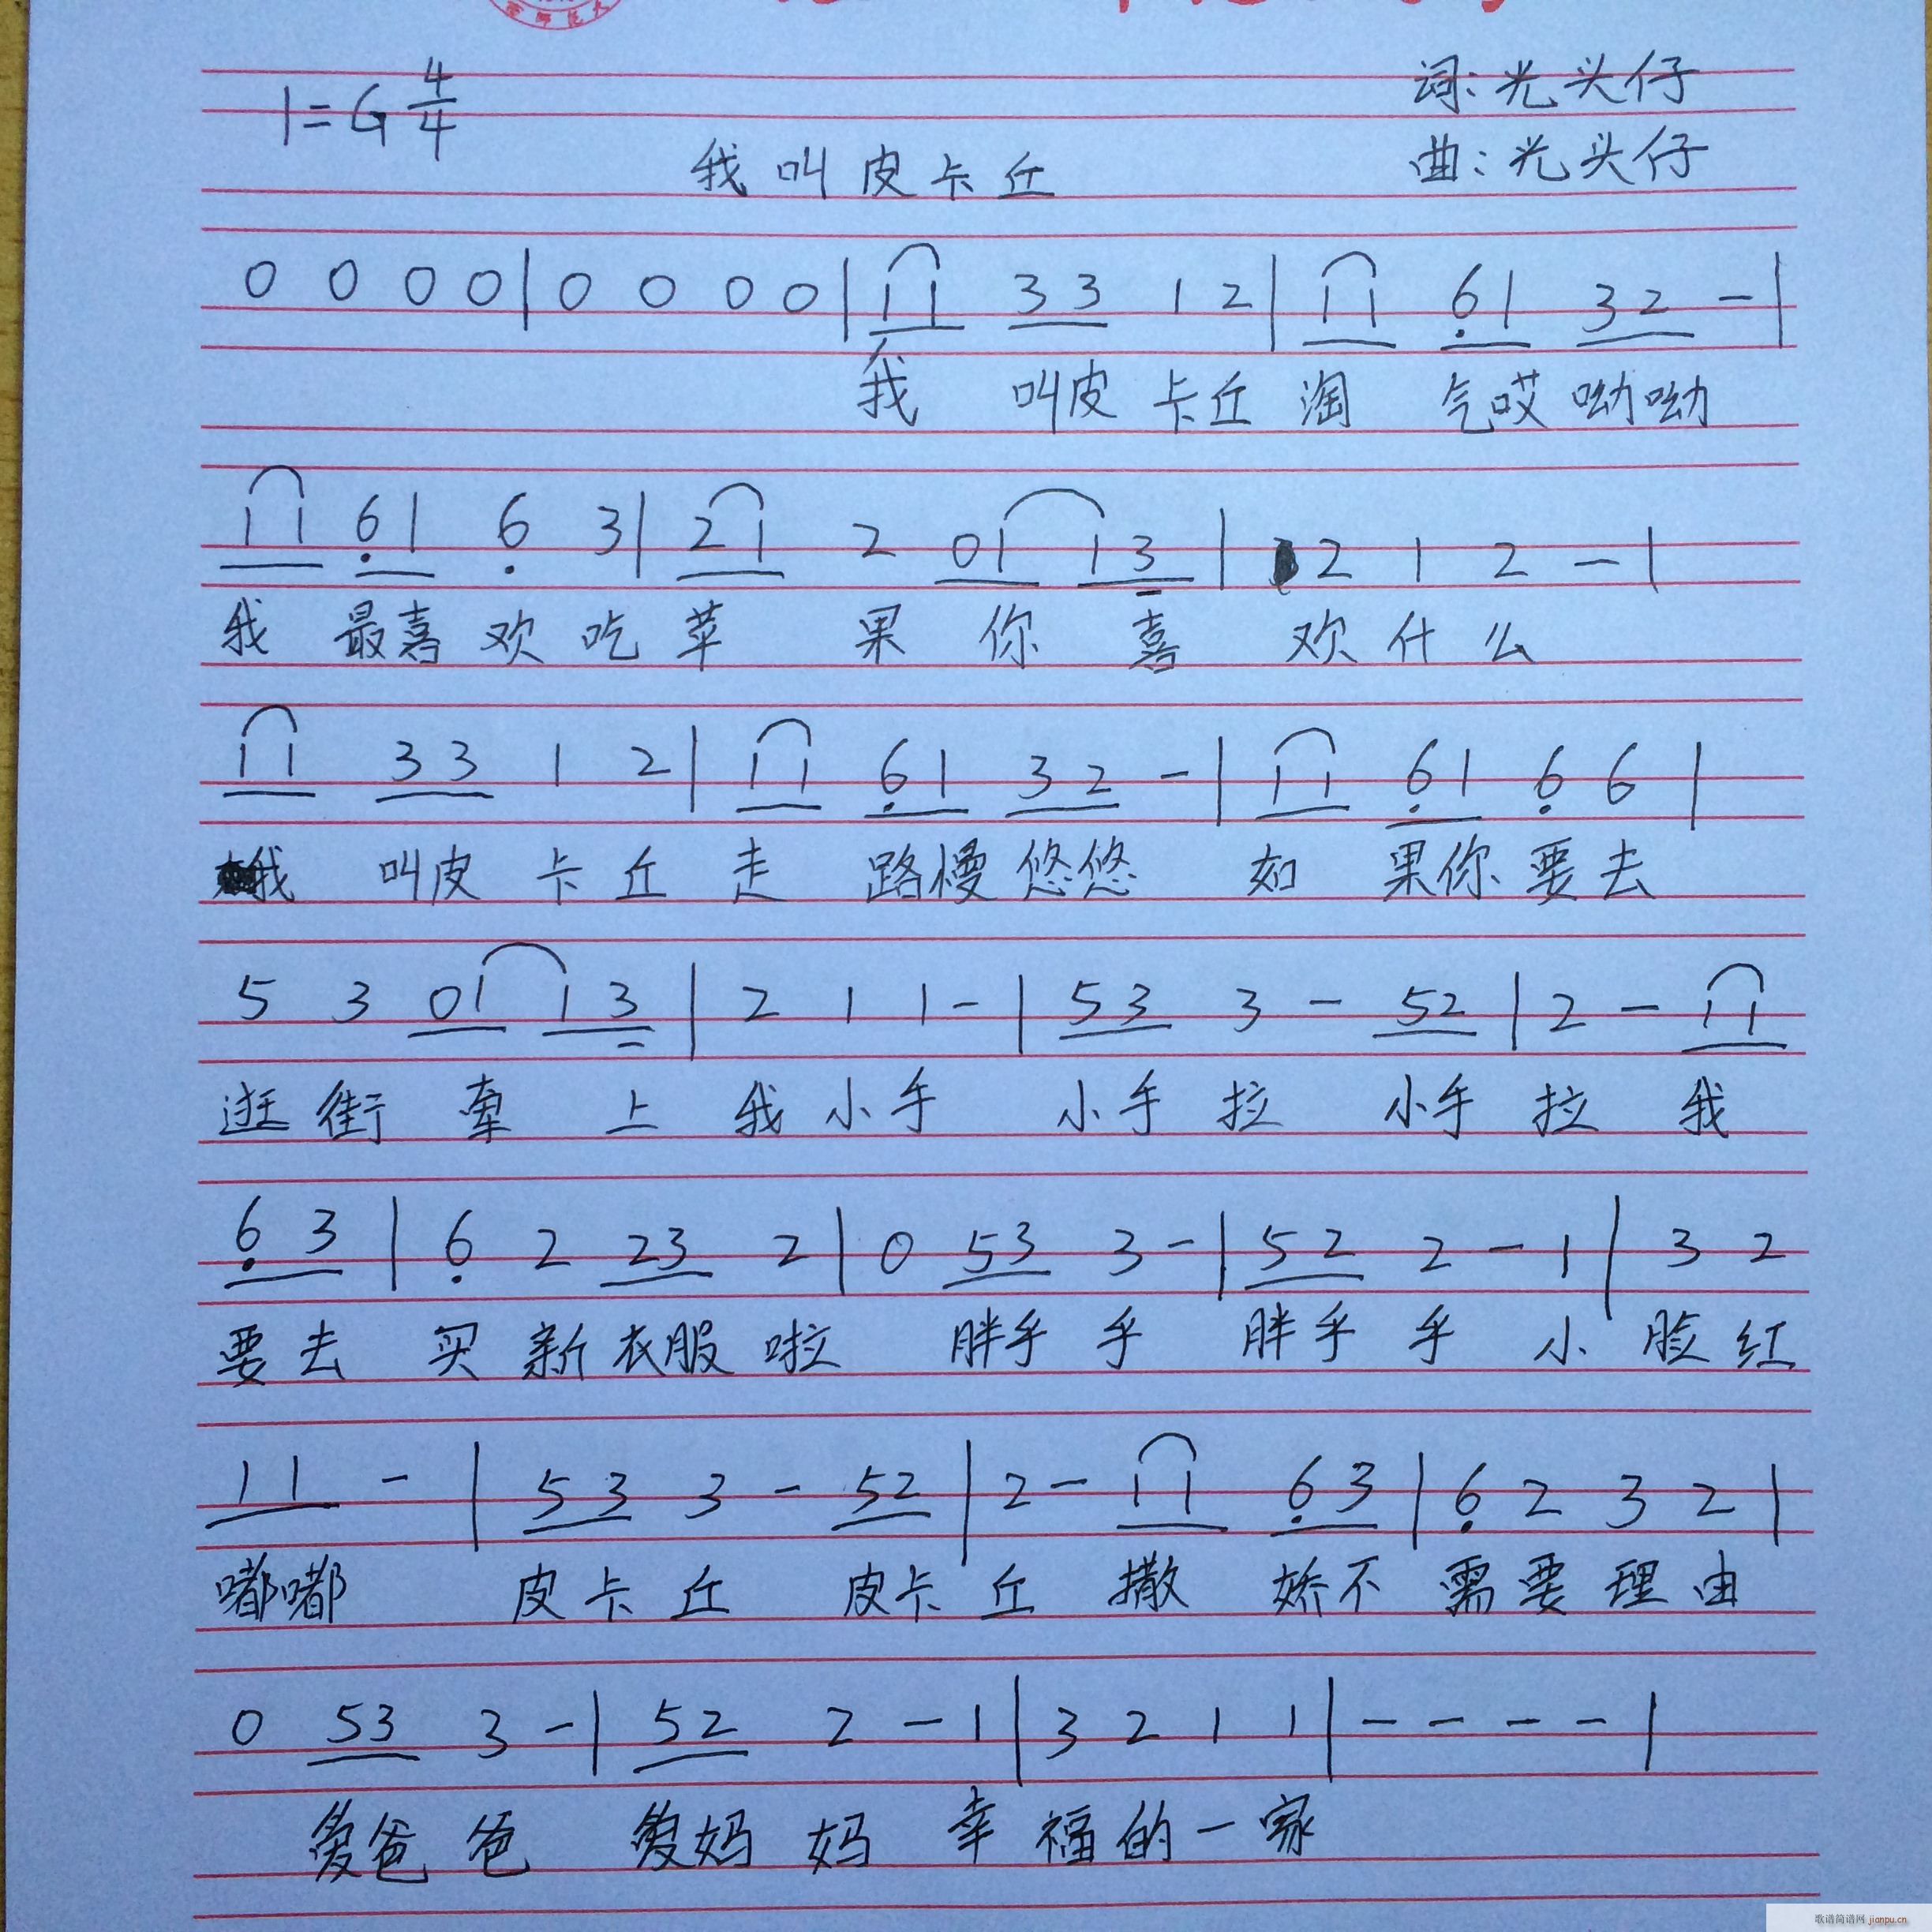 1=G 4/4
词:光头仔
曲:光头仔
我叫皮卡丘
0 0 0 0 | 0 0 0 0 | 11 33 1 2 | 11 61 32 - |
我 叫皮 卡丘 淘 气哎 呦呦
11 61 6 3 | 21 2 01 13 | 2 1 2 - |
我 最喜 欢 吃 苹 果 你 喜 欢 什 么
11 33 1 2 | 11 61 32 - | 11 61 6 6 |
我 叫皮 卡 丘 走 路慢 悠悠 如 果你 要 去
5 3 01 13 | 2 1 1 - | 53 3 - 52 | 2 - 11
逛 街 牵 上 我 小 手 小手 拉 小手 拉 我
63 | 6 2 23 2 | 0 53 3 - | 52 2 - 1 | 3 2
要 去 买 新 衣服 啦 胖乎 乎 胖乎 乎 小 脸 红
11 - | 53 3 - 52 | 2 - 11 63 | 6 2 3 2 |
嘟嘟 皮卡 丘 皮卡 丘 撒 娇不 需 要 理 由
0 53 3 - | 52 2 - 1 | 3 2 1 1 | - - - - |
爱爸 爸 爱妈 妈 幸 福 的 一 家
歌谱简谱网 jianpu.cn